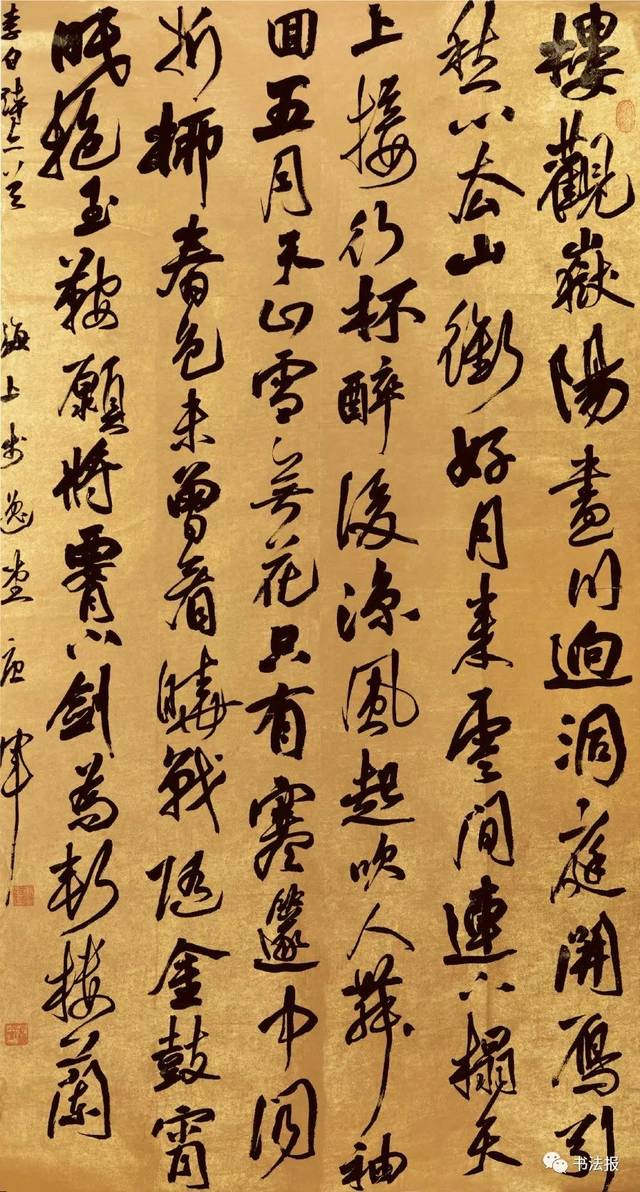 樓觀嶽陽盡川迥洞庭開雁引
愁心去山銜好月來雲間連下榻天
上接行杯醉後涼風起吹人舞袖
回五月天山雪無花只有寒邃中聞
折柳春色未曾看曉戰隨金鼓宵
眠抱玉鞍願將腰下劍為斬樓蘭
李白詩二首 海上
书法报